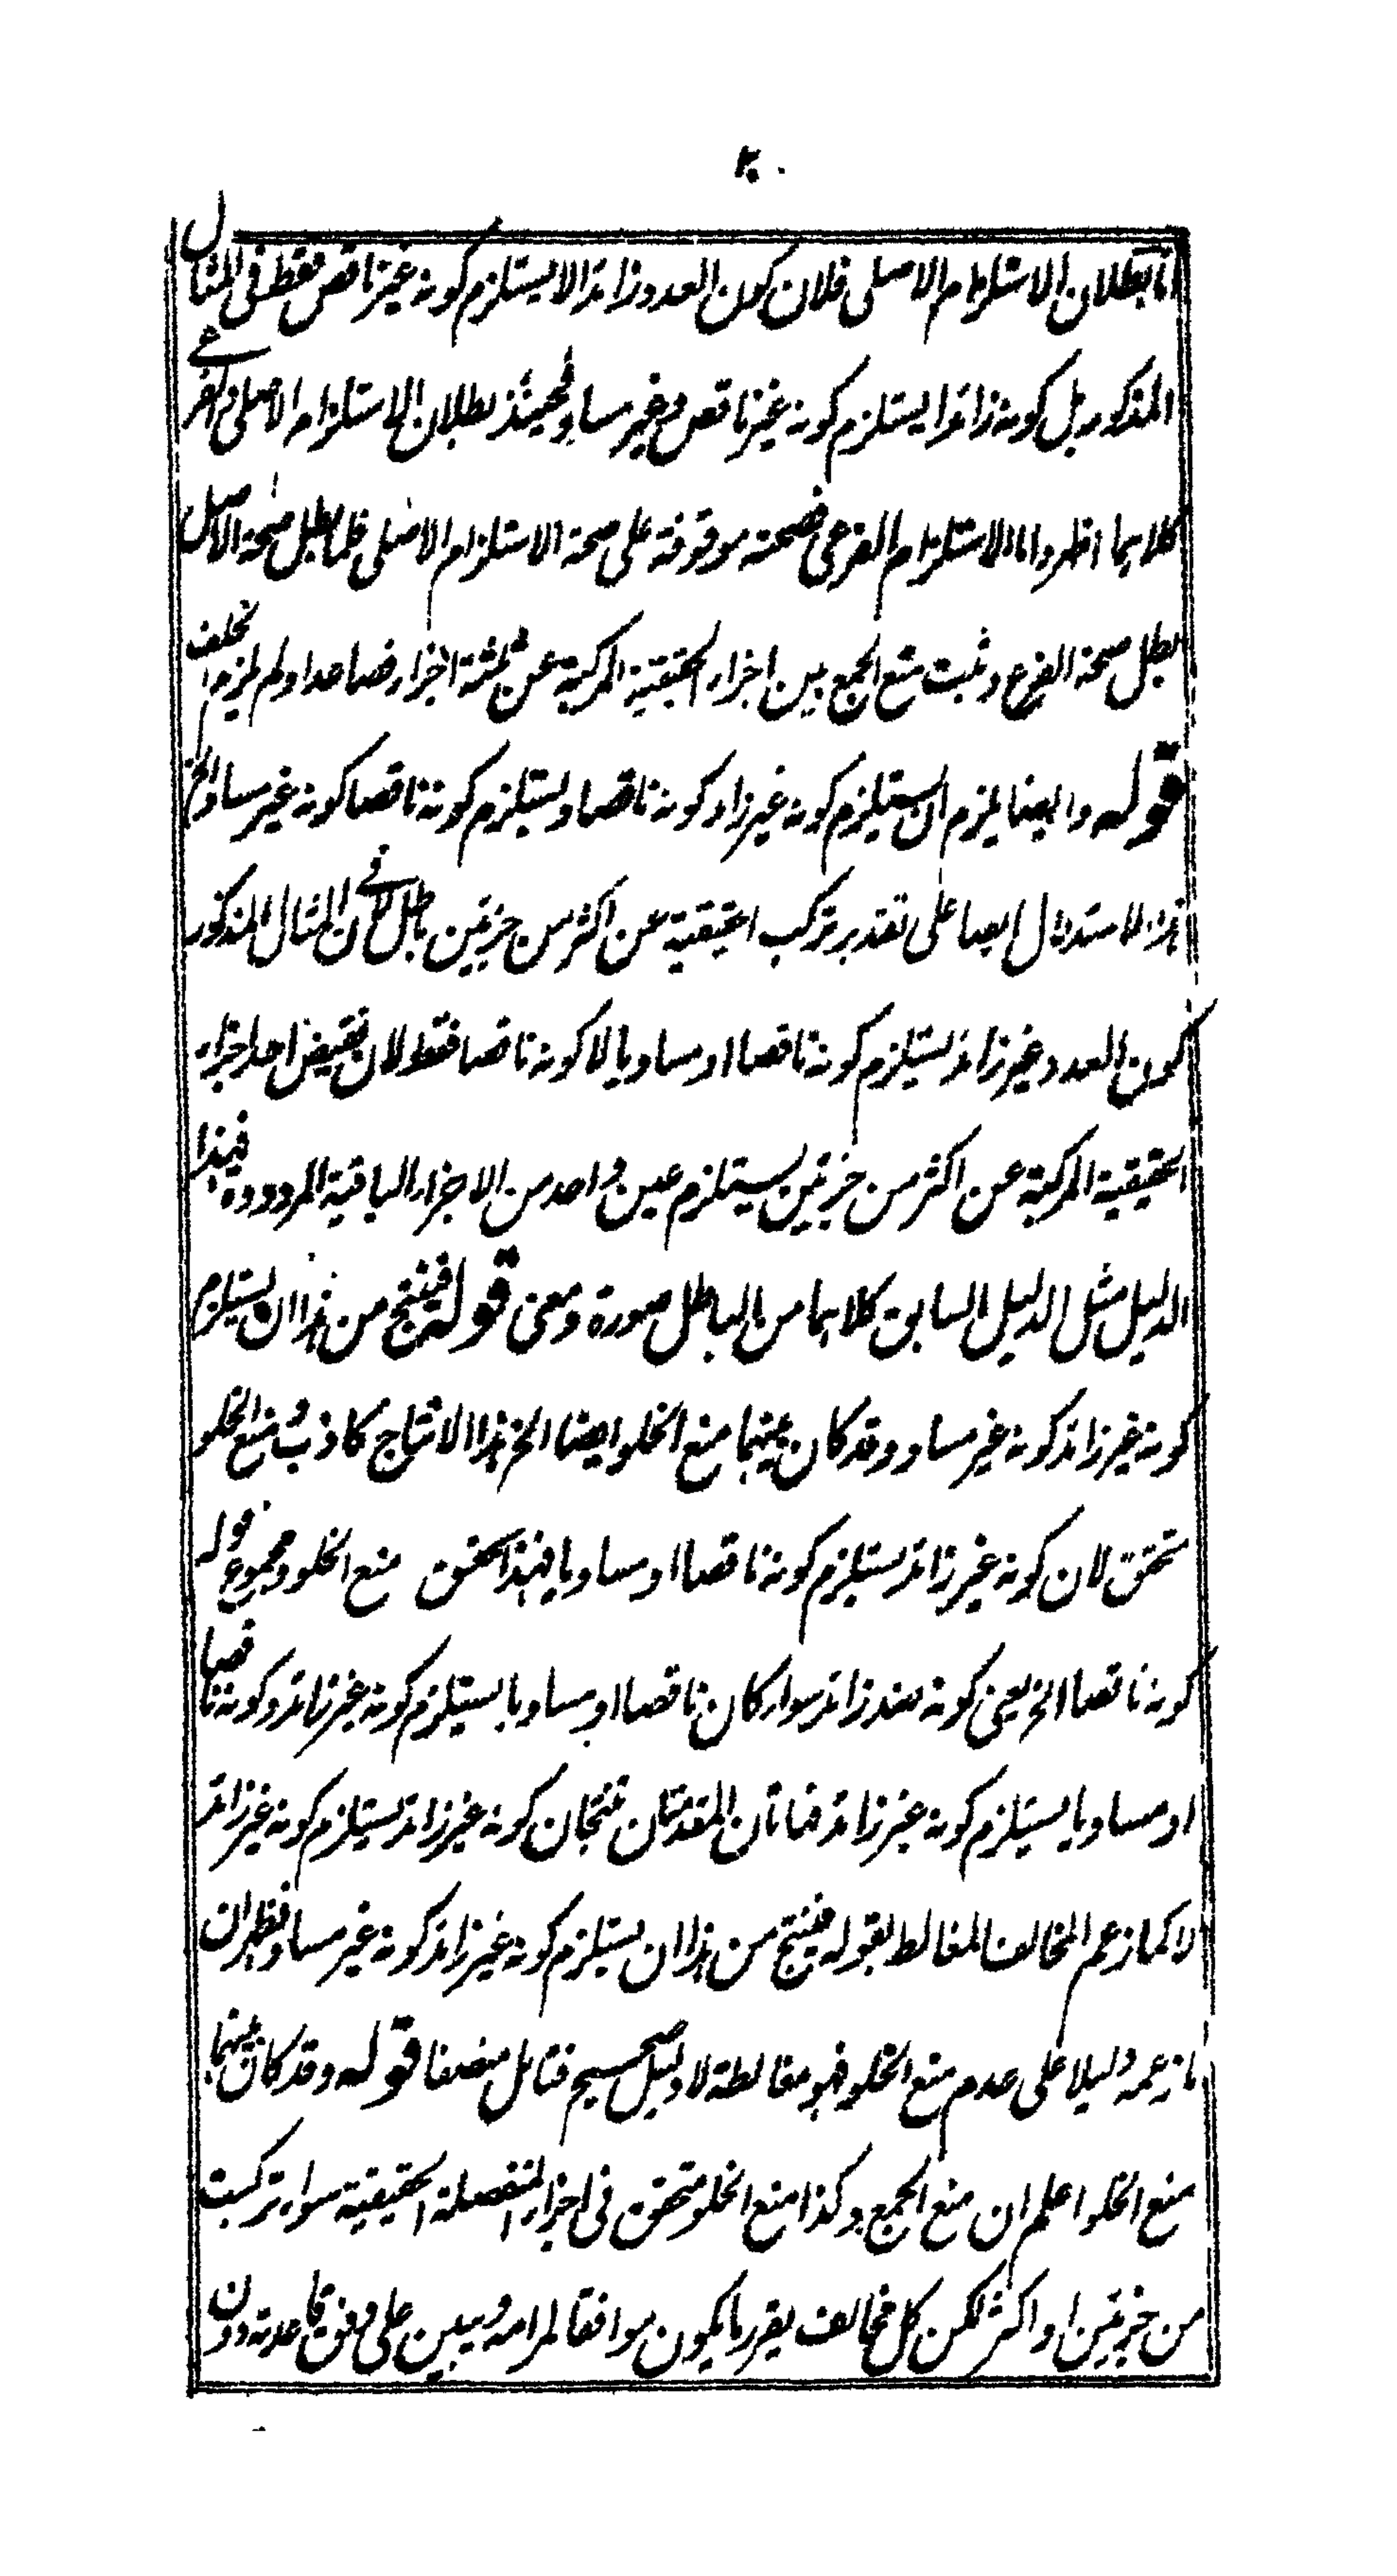 ٢٠
اما بطلان الاستلزام الاصلى فلان كون العدد زائدا لا يستلزم كونه غير ناقص فقط فى المثال
المذكور بل كونه زائدا يستلزم كونه غير ناقص وغير مساو فحينئذ بطلان الاستلزام الاصلى والفرعي
كلاهما اظهر واما الاستلزام الفرعى فصحته موقوفة على صحة الاستلزام الاصلى فلما بطل صحة الاصل
بطل صحة الفرع وثبت منع الجمع بين اجزاء الحقيقية المركبة عن ثلثة اجزاء فصاعدا ولم يلزم الخلف
قوله وايضا يلزم ان يستلزم كونه غير زائد كونه ناقصا ويستلزم كونه ناقصا كونه غير مساو الخ
هذا الاستدلال ايضا على تقدير تركب الحقيقية عن اكثر من جزئين باطل لان في المثال المذكور
كون العدد غير زائد يستلزم كونه ناقصا او مساويا لا كونه ناقصا فقط لان نقيض احد اجزاء
الحقيقية المركبة عن اكثر من جزئين يستلزم عين واحد من الاجزاء الباقية المردودة فهذا
الدليل مثل الدليل السابق كلاهما من الباطل صورة ومعنى قوله فينتج من هذا ان يستلزم
كونه غير زائد كونه غير مساو وقد كان بينهما منع الخلو ايضا الخ هذا الانتاج كاذب ومنع الخلو
متحقق لان كونه غير زائد يستلزم كونه ناقصا او مساويا فبهذا تحقق منع الخلو ومجموع قوله
كونه ناقصا الخ يعنى كونه ضد زائد سواء كان ناقصا او مساويا يستلزم كونه غير زائد وكونه ناقصا
او مساويا يستلزم كونه غير زائد فهاتان المقدمتان تنتجان كونه غير زائد يستلزم كونه غير زائد
لا كما زعم المخالف المغالط بقوله فينتج من هذا ان يستلزم كونه غير زائد كونه غير مساو فظهر ان
ما زعمه دليلا على عدم منع الخلو فهو مغالطة لا دليل صحيح فتامل منصفا قوله وقد كان بينهما
منع الخلو اعلم ان منع الجمع وكذا منع الخلو متحقق فى اجزاء المنفصلة الحقيقية سواء تركبت
من جزئين او اكثر لكن كل مخالف يقرر ما يكون موافقا لمرامه ويبين على وفق قاعدته دون